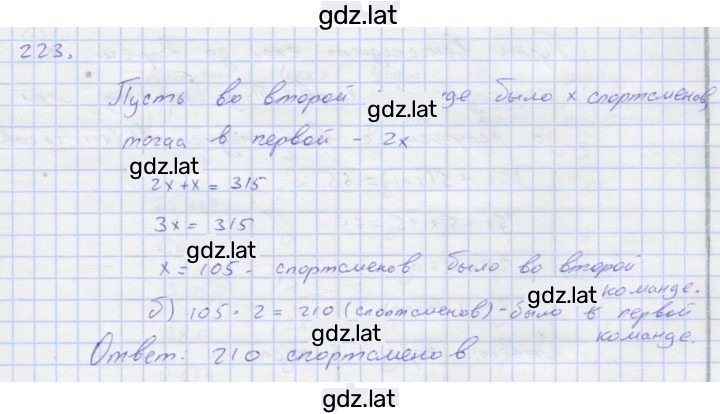 gdz.lat
223.
Пусть во второй где было x спортсменов,
gdz.lat
тогда в первой - 2x
gdz.lat
2x+x = 315
3x = 315
gdz.lat
x = 105 - спортсменов было во второй
команде.
gdz.lat
б) 105 · 2 = 210 (спортсменов) - было в первой
команде.
gdz.lat
Ответ: 210 спортсменов
gdz.lat